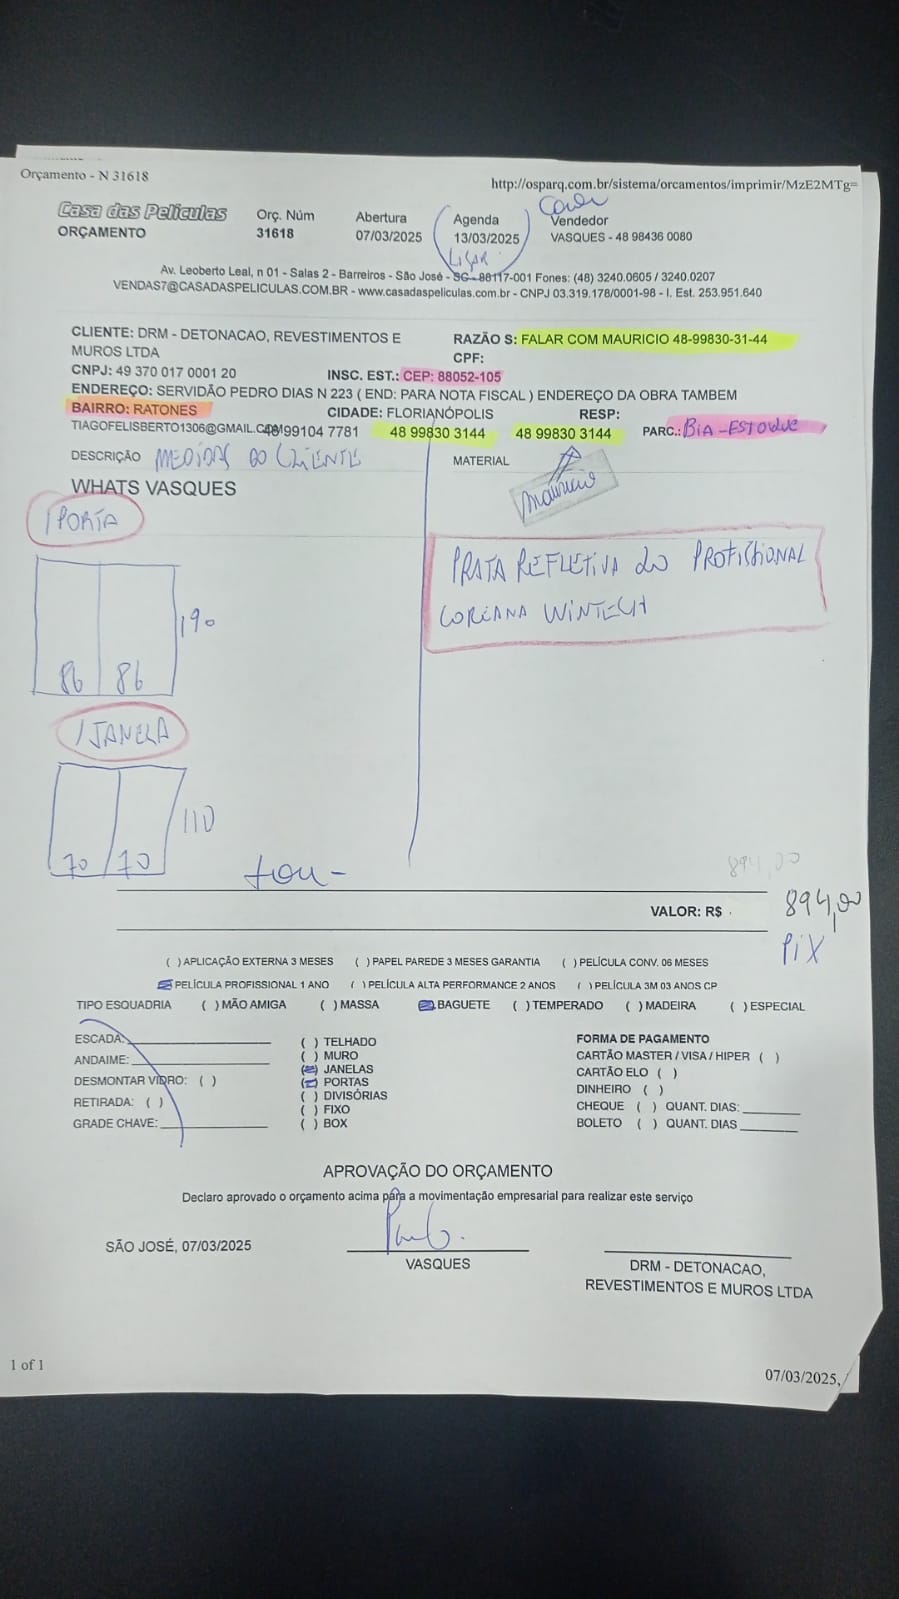 Orçamento - N 31618
http://osparq.com.br/sistema/orcamentos/imprimir/MzE2MTg=
Casa das Películas
ORÇAMENTO
Orç. Núm
31618
Abertura
07/03/2025
Agenda
13/03/2025
LIGAR
Vendedor
VASQUES - 48 98436 0080
Av. Leoberto Leal, n 01 - Salas 2 - Barreiros - São José - SC - 88117-001 Fones: (48) 3240.0605 / 3240.0207
VENDAS7@CASADASPELICULAS.COM.BR - www.casadaspeliculas.com.br - CNPJ 03.319.178/0001-98 - I. Est. 253.951.640
CLIENTE: DRM - DETONACAO, REVESTIMENTOS E
MUROS LTDA
RAZÃO S: FALAR COM MAURICIO 48-99830-31-44
CPF:
CNPJ: 49 370 017 0001 20
INSC. EST.: CEP: 88052-105
ENDEREÇO: SERVIDÃO PEDRO DIAS N 223 ( END: PARA NOTA FISCAL ) ENDEREÇO DA OBRA TAMBEM
BAIRRO: RATONES
CIDADE: FLORIANÓPOLIS
RESP:
TIAGOFELISBERTO1306@GMAIL.COM
48 99104 7781
48 99830 3144
48 99830 3144
PARC.: BIA - ESTOQUE
DESCRIÇÃO MEDIDAS DO CLIENTE
MATERIAL
Mauricio
WHATS VASQUES
1 PORTA
190
86 86
PRATA REFLETIVA 20 PROFISSIONAL
COREANA WINTECH
1 JANELA
110
70 70
894,00
VALOR: R$
894,00
PIX
( ) APLICAÇÃO EXTERNA 3 MESES ( ) PAPEL PAREDE 3 MESES GARANTIA ( ) PELÍCULA CONV. 06 MESES
PELÍCULA PROFISSIONAL 1 ANO ( ) PELÍCULA ALTA PERFORMANCE 2 ANOS ( ) PELÍCULA 3M 03 ANOS CP
TIPO ESQUADRIA ( ) MÃO AMIGA ( ) MASSA BAGUETE ( ) TEMPERADO ( ) MADEIRA ( ) ESPECIAL
ESCADA:
ANDAIME:
DESMONTAR VIDRO: ( )
RETIRADA: ( )
GRADE CHAVE:
( ) TELHADO
( ) MURO
( ) JANELAS
( ) PORTAS
( ) DIVISÓRIAS
( ) FIXO
( ) BOX
FORMA DE PAGAMENTO
CARTÃO MASTER / VISA / HIPER ( )
CARTÃO ELO ( )
DINHEIRO ( )
CHEQUE ( ) QUANT. DIAS:
BOLETO ( ) QUANT. DIAS
APROVAÇÃO DO ORÇAMENTO
Declaro aprovado o orçamento acima para a movimentação empresarial para realizar este serviço
SÃO JOSÉ, 07/03/2025
VASQUES
DRM - DETONACAO,
REVESTIMENTOS E MUROS LTDA
1 of 1
07/03/2025,